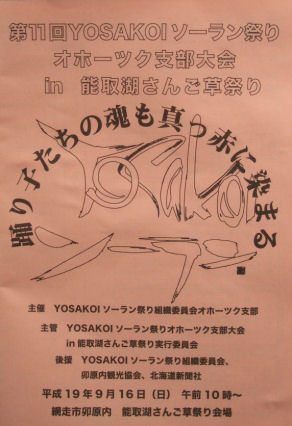 第11回YOSAKOIソーラン祭り
オホーツク支部大会
in 能取湖さんご草祭り
踊り子たちの魂も真っ赤に染まる
Yosakoi
ソーラン
主催 YOSAKOIソーラン祭り組織委員会オホーツク支部
主管 YOSAKOIソーラン祭りオホーツク支部大会
in能取湖さんご草祭り実行委員会
後援 YOSAKOIソーラン祭り組織委員会、
卯原内観光協会、北海道新聞社
平成19年9月16日（日） 午前10時～
網走市卯原内 能取湖さんご草祭り会場